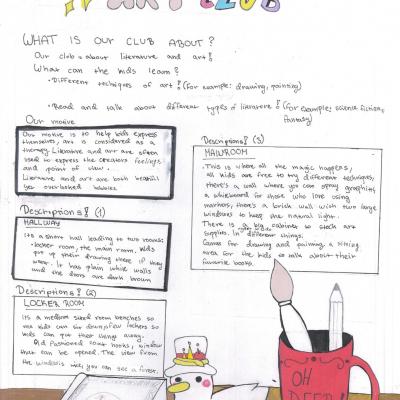 ART CLUB
WHAT IS OUR CLUB ABOUT?
Our club is about literature and art!
What can the kids learn?
• Different techniques of art! (For example: drawing, painting)
• Read and talk about different types of literature! (For example: science fiction, fantasy)
Our motive
Our motive is to help kids express
themselves, art is considered as a
therapy. Literature and art are often
used to express the creators feelings
and point of view.
Literature and art are both beatiful
yet overlooked hobbies
Descriptions! (1)
HALLWAY
Its a short hall leading to two rooms:
locker room, the main room. Kids
put up their drawing there if they
want. It has plain white walls
and the doors are dark brown
Descriptions! (2)
LOCKER ROOM
Its a medium sized room benches so
the kids can sit down, few lockers so
kids can put their things away.
Old fashioned coat hooks, window
that can be opened. The view from
the window is nice, you can see a forest.
Descriptions! (3)
MAINROOM
This is where all the magic happens,
all kids are free to try different techniques,
there's a wall where you can spray graphiti,
a whiteboard for those who love using
markers, there's a brick wall with two large
windows to keep the natural light.
There is a big cabinet to stock art
supplies. In different things.
Canvas for drawing and painting, a sitting
area for the kids to talk about their
favourite books.
OH
DEER!